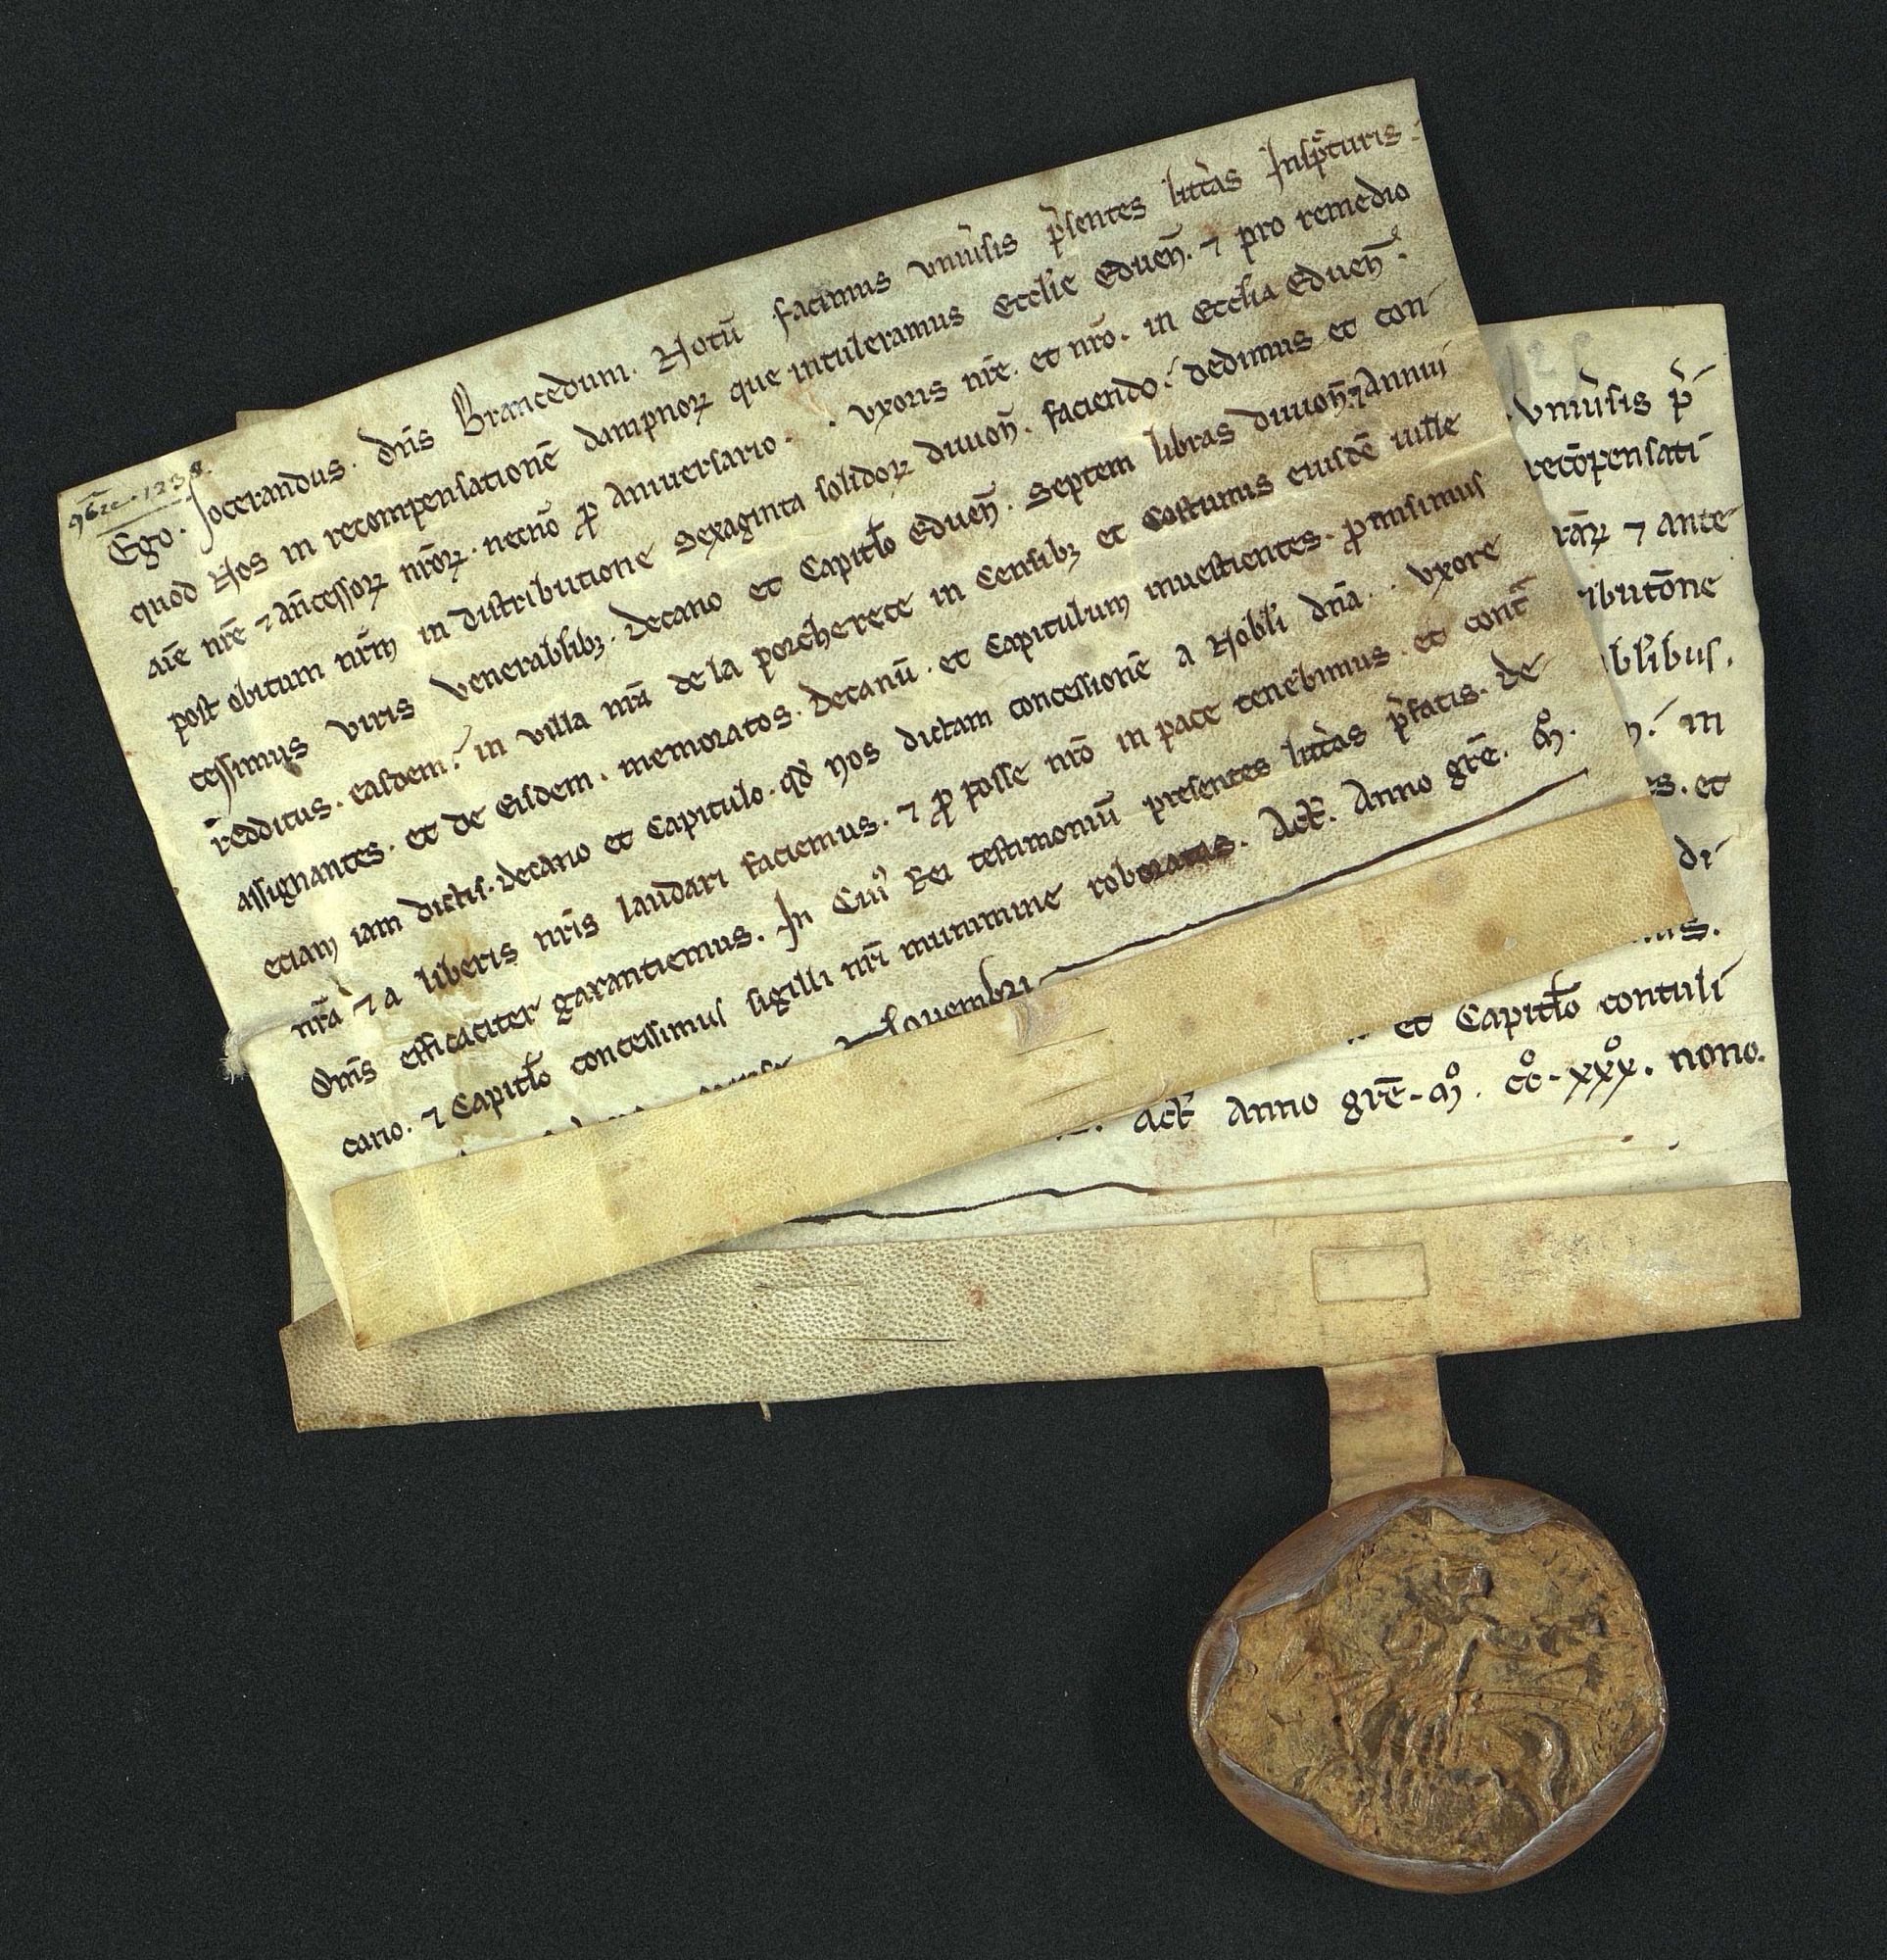 9bre 1238.
Ego. Jocerandus. dñs Brancedum. Notū facimus vniu̾sis p̾sentes litt̾as Insp̃cturis.
quod Nos in recompensationē dampnoꝝ que intuleramus Ecclie Eduen̄. ⁊ pro remedio
aīe nr̄e ⁊ an̄cessoꝝ nr̄oꝝ. necnō ꝓ Aniuersario. . vxoris nr̄e. et nr̄o. in Ecclia Eduen̄.
post obitum nr̄m in distributione Sexaginta solidoꝝ diuion̄. faciendo. dedimus et con
cessimus viris venerabilibꝫ. decano et Capitl̄o Eduen̄. Septem libras diuion̄. Annui
redditus. easdem. in villa nr̄a de la porcherece in Censibꝫ et Costumis eiusdē uille
assignantes. et de Eisdem. memoratos. decanū. et Capitulum inuestientes. promisimus
eciam iam dictis. decano et Capitulo. qd̄ nos dictam concessionē a Nobili dn̄a . . vxore
nr̄a ⁊ a liberis nr̄is laudari faciemus. ⁊ ꝓ posse nr̄o in pace tenebimus. et cont̄
Om̄s efficaciter garantiemus. In Cuiꝰ Rei testimoniū presentes litt̾as p̾fatis. de
cano. ⁊ Capitl̄o concessimus sigilli nr̄i munimine roboratas. Act̄. Anno gr̄e. m̊.
Nouembri
vniu̾sis p̾
recōpensati
⁊ ante
ributōne
in
et
di
et Capitl̄o contuli
Act̄ Anno gr̄e. m̊. cc̊. xxx̊. nono.